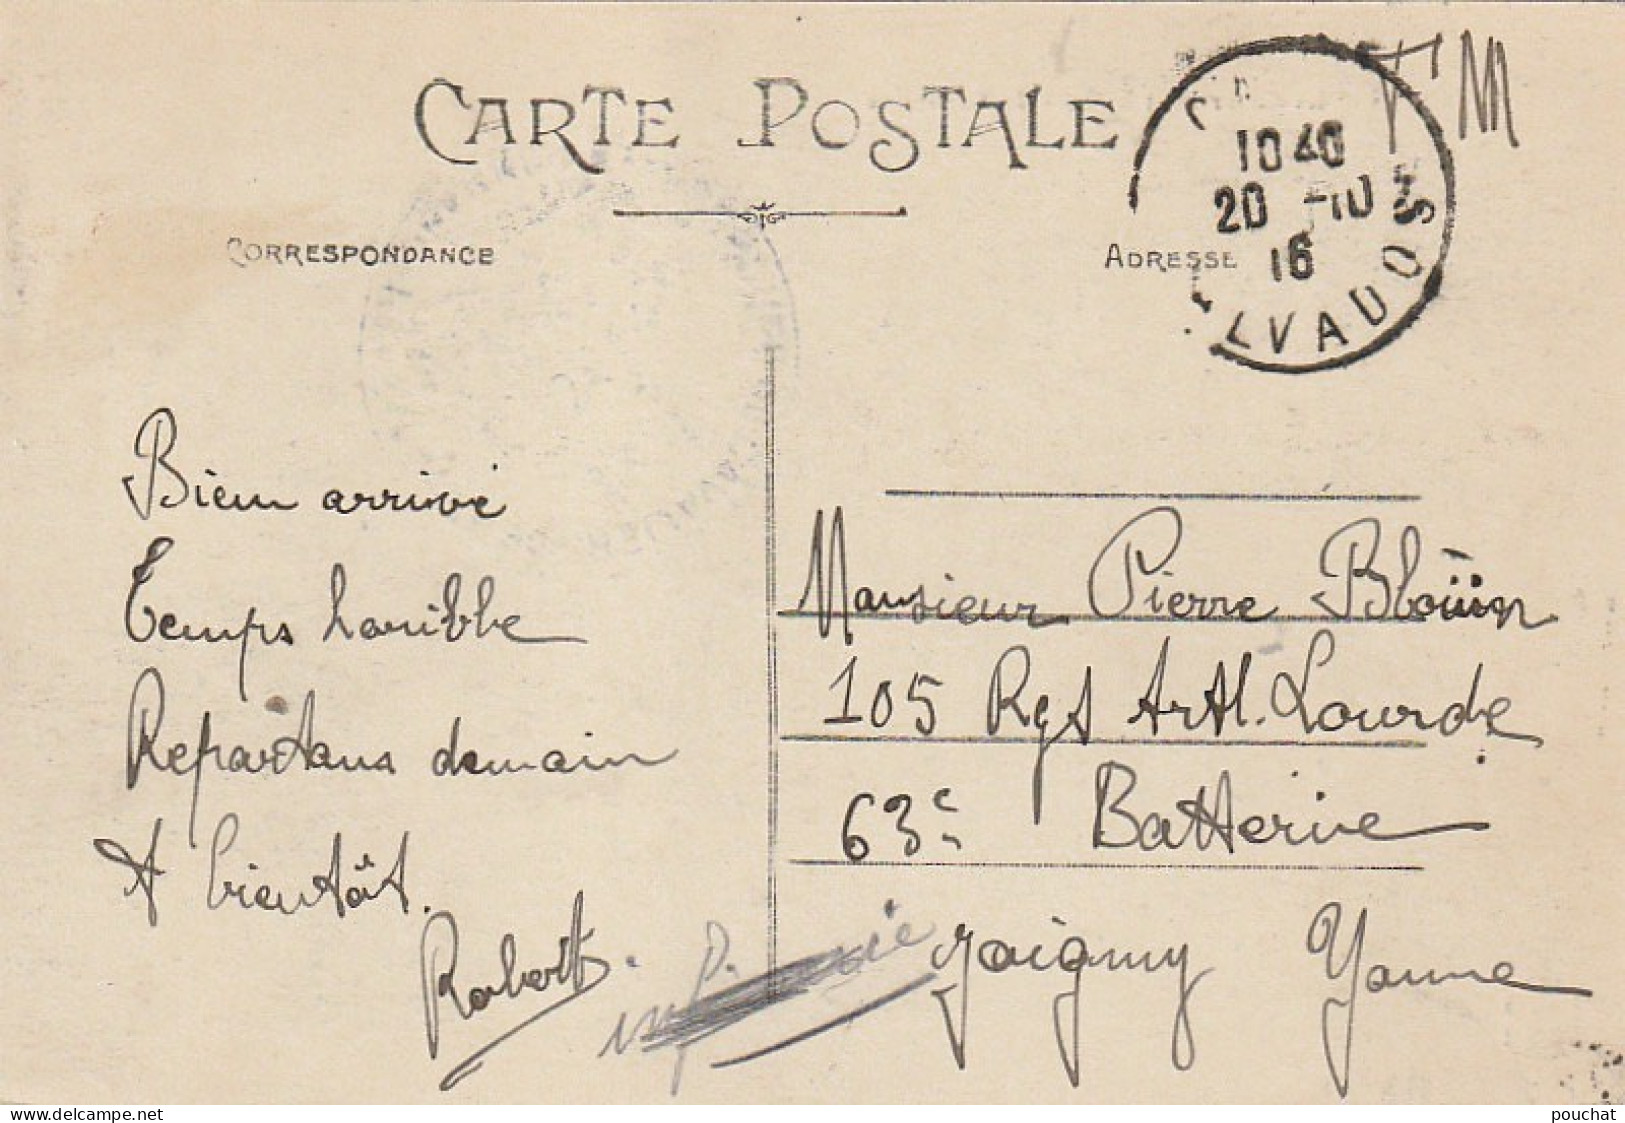 CARTE POSTALE
F M
CORRESPONDANCE
ADRESSE
10 40
20 -10
16
LVADOS
Bien arrivé
Temps horrible
Repartons demain
A bientôt.
Robert.
Monsieur Pierre Bloüin
105 Rgt Artl. Lourde
63e Batterie
Joigny Yonne
delcampe.net
pouchat